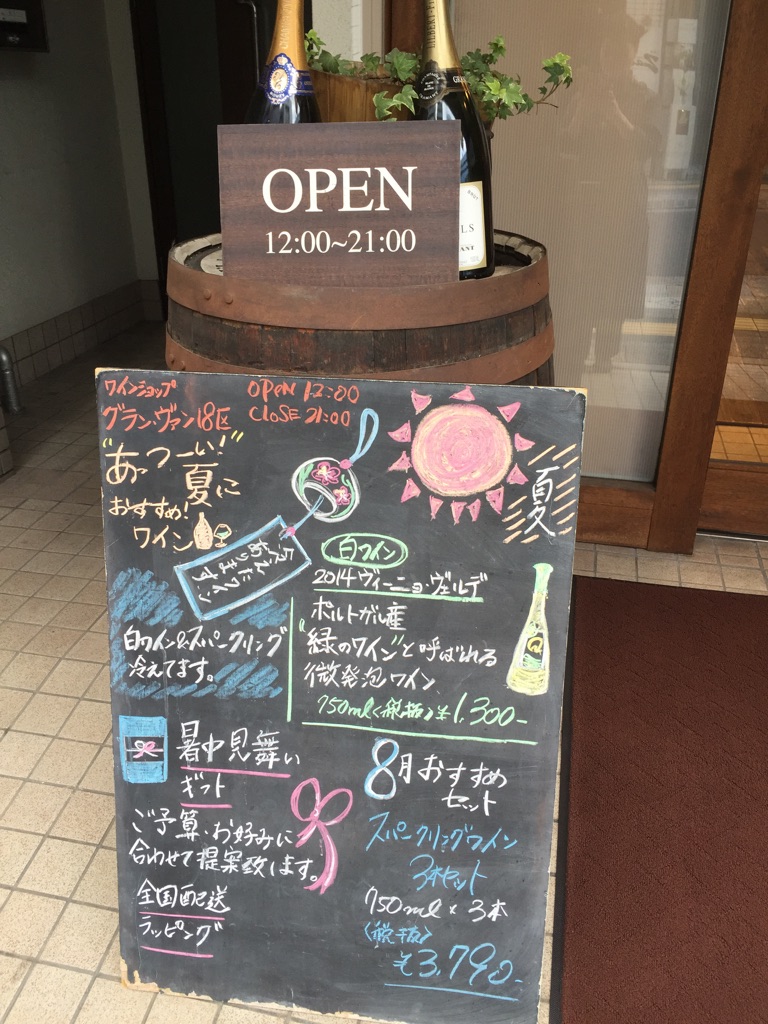 OPEN
12:00~21:00
LS
ワインショップ
グラン・ヴァン18区
OPEN 12:00
CLOSE 21:00
"あっつーい!"
夏に
おすすめ!
ワイン
夏
冷えたワイン
あります
白ワイン&スパークリング
冷えてます。
白ワイン
2014 ヴィーニョ・ヴェルデ
ポルトガル産
"緑のワイン"と呼ばれる
微発泡ワイン
750ml<税抜>¥1,300-
暑中見舞い
ギフト
ご予算、お好みに
合わせて提案致します。
全国配送
ラッピング
8月おすすめ
セット
スパークリングワイン
3本セット
750ml×3本
<税抜>
¥3,790-